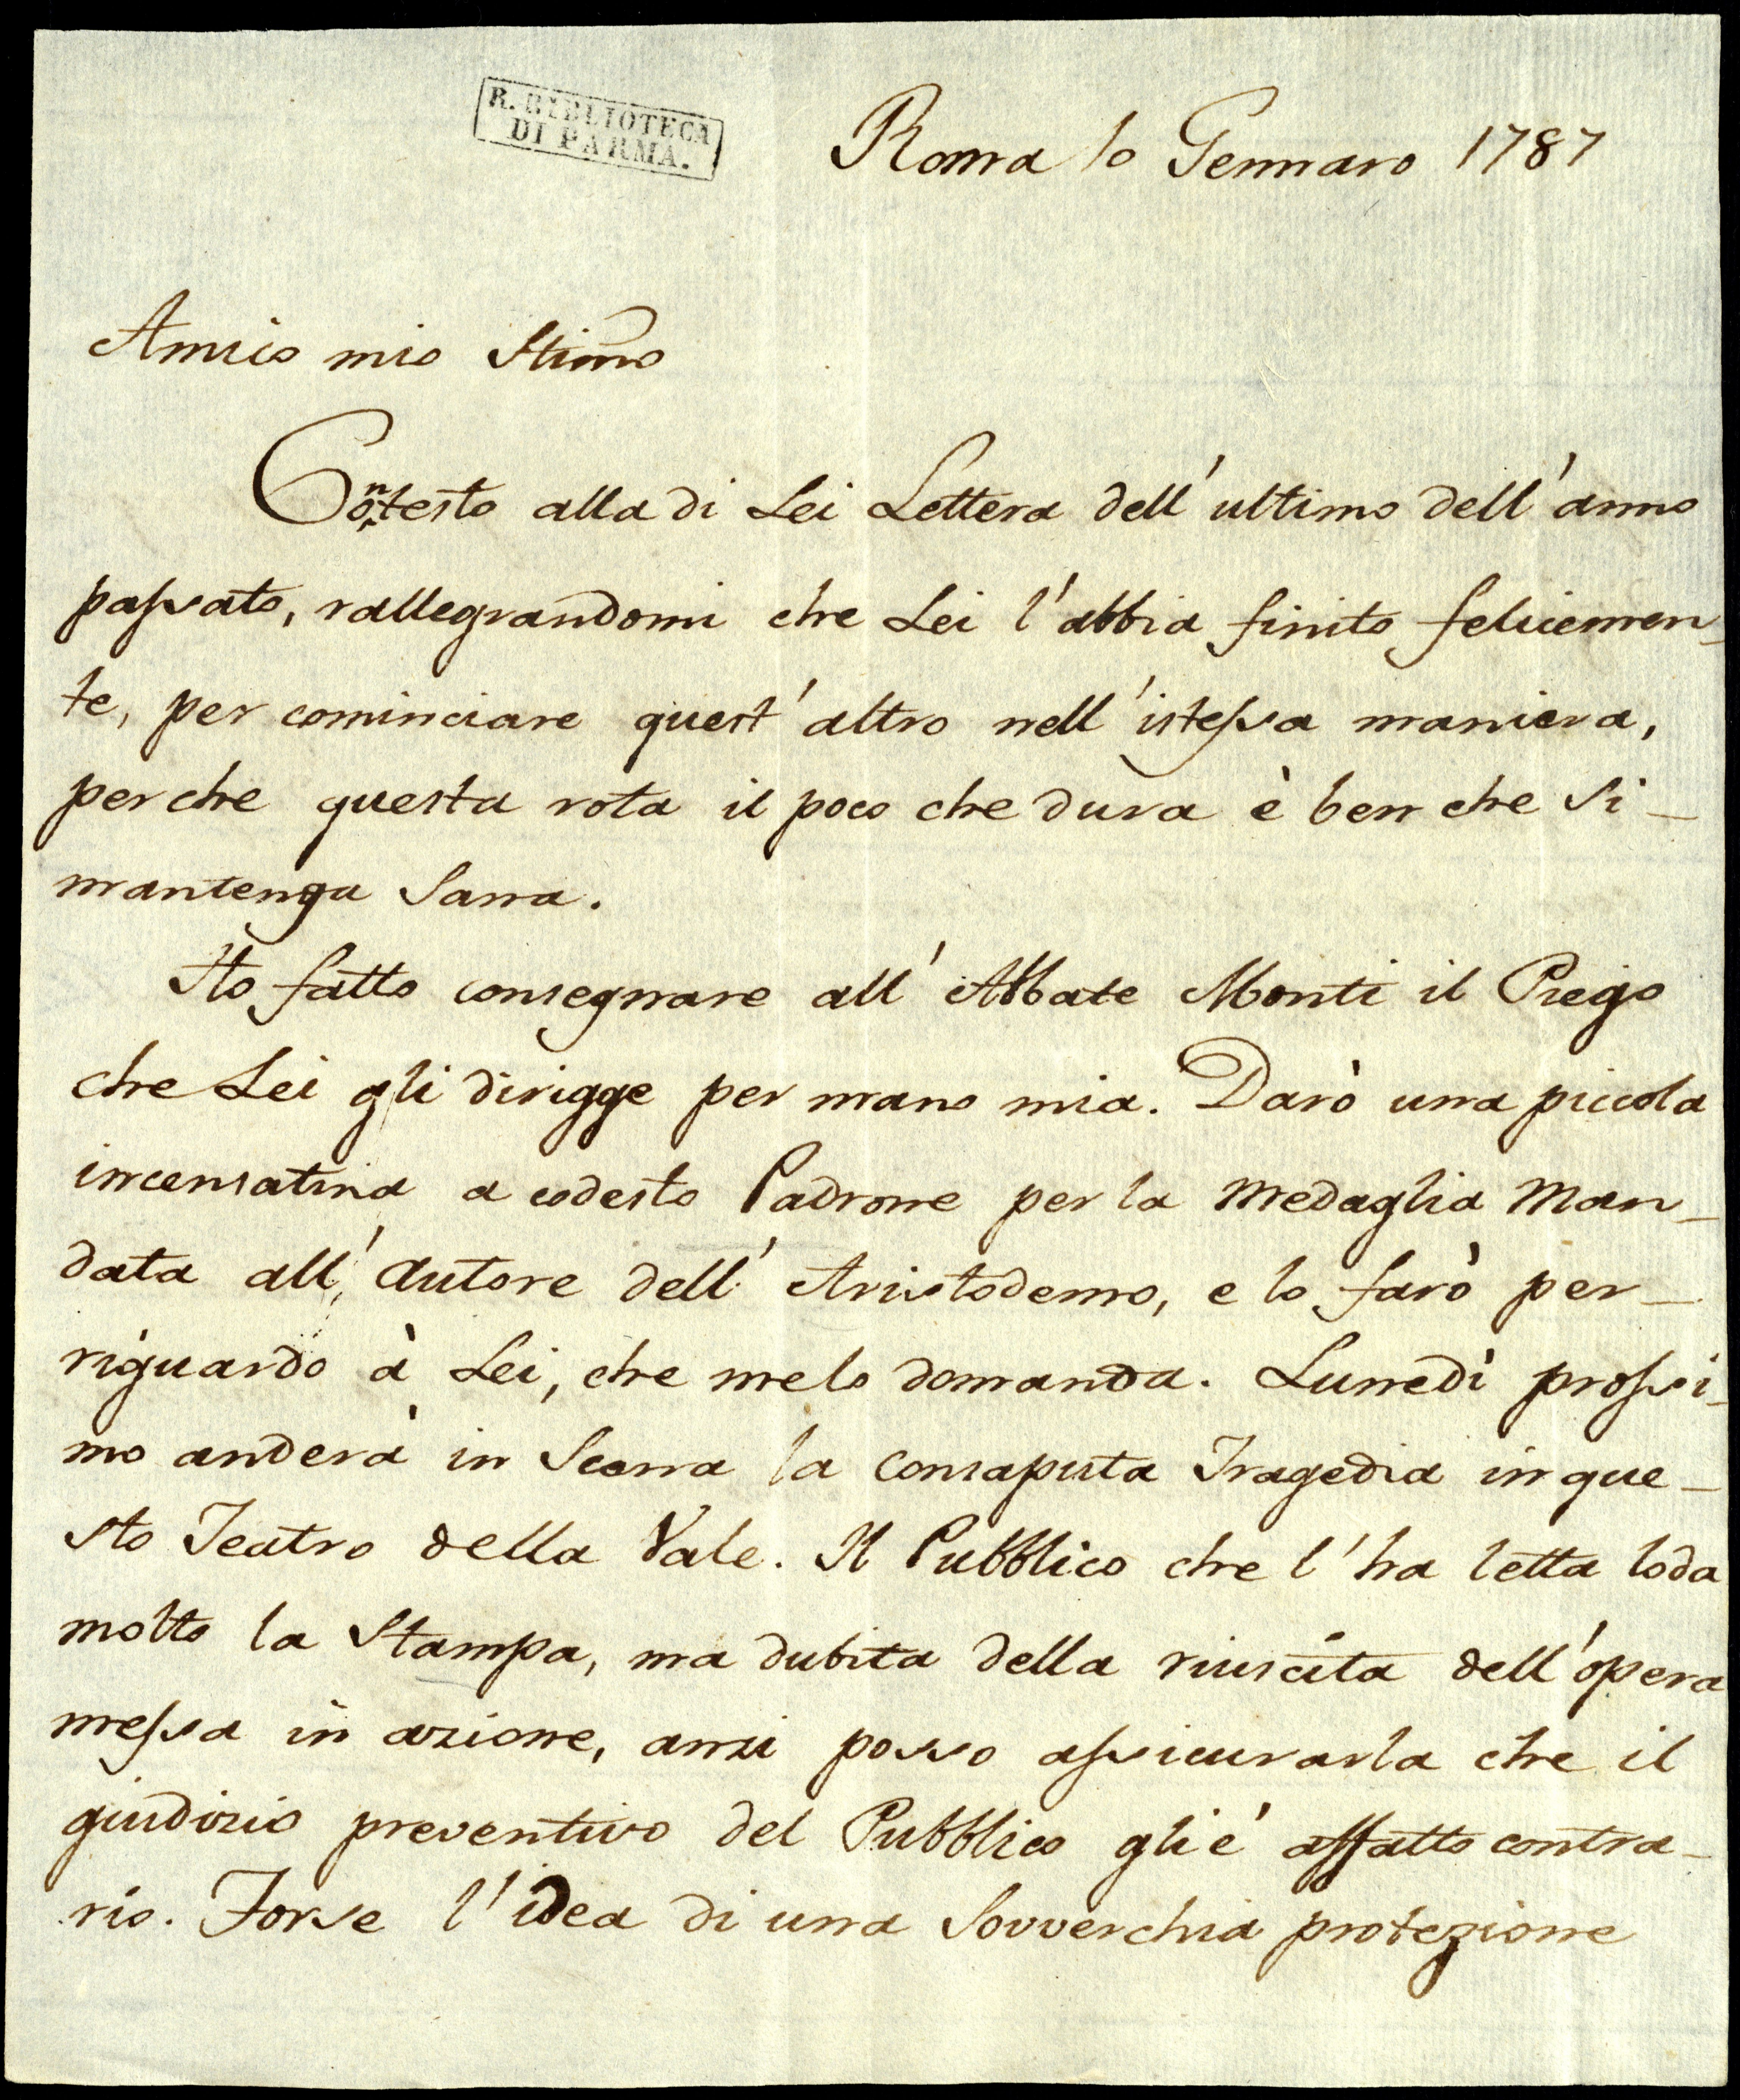 R. BIBLIOTECA
DI PARMA.
Roma 10 Gennaro 1787
Amico mio Stimo
Contesto alla di Lei Lettera dell' ultimo dell' anno
passato, rallegrandomi che Lei l' abbia finito felicemen_
te, per cominciare quest' altro nell' istessa maniera,
perche questa rota il poco che dura è ben che si_
mantenga Sana.
Ho fatto consegnare all' Abbate Monti il Piego
che Lei gli dirigge per mano mia. Darò una piccola
incensatina a codesto Padrone per la Medaglia Man_
data all' Autore dell' Aristodemo, e lo farò per_
riguardo à Lei, che melo domanda. Lunedì prossi_
mo anderà in Scena la consaputa Tragedia in que_
sto Teatro della Vale. Il Pubblico che l' ha letta loda
molto la Stampa, ma dubita della riuscita dell' opera
messa in azione, anzi posso assicurarla che il
giudizio preventivo del Pubblico gli è affatto contra_
rio. Forse l' idea di una Sovverchia protezione